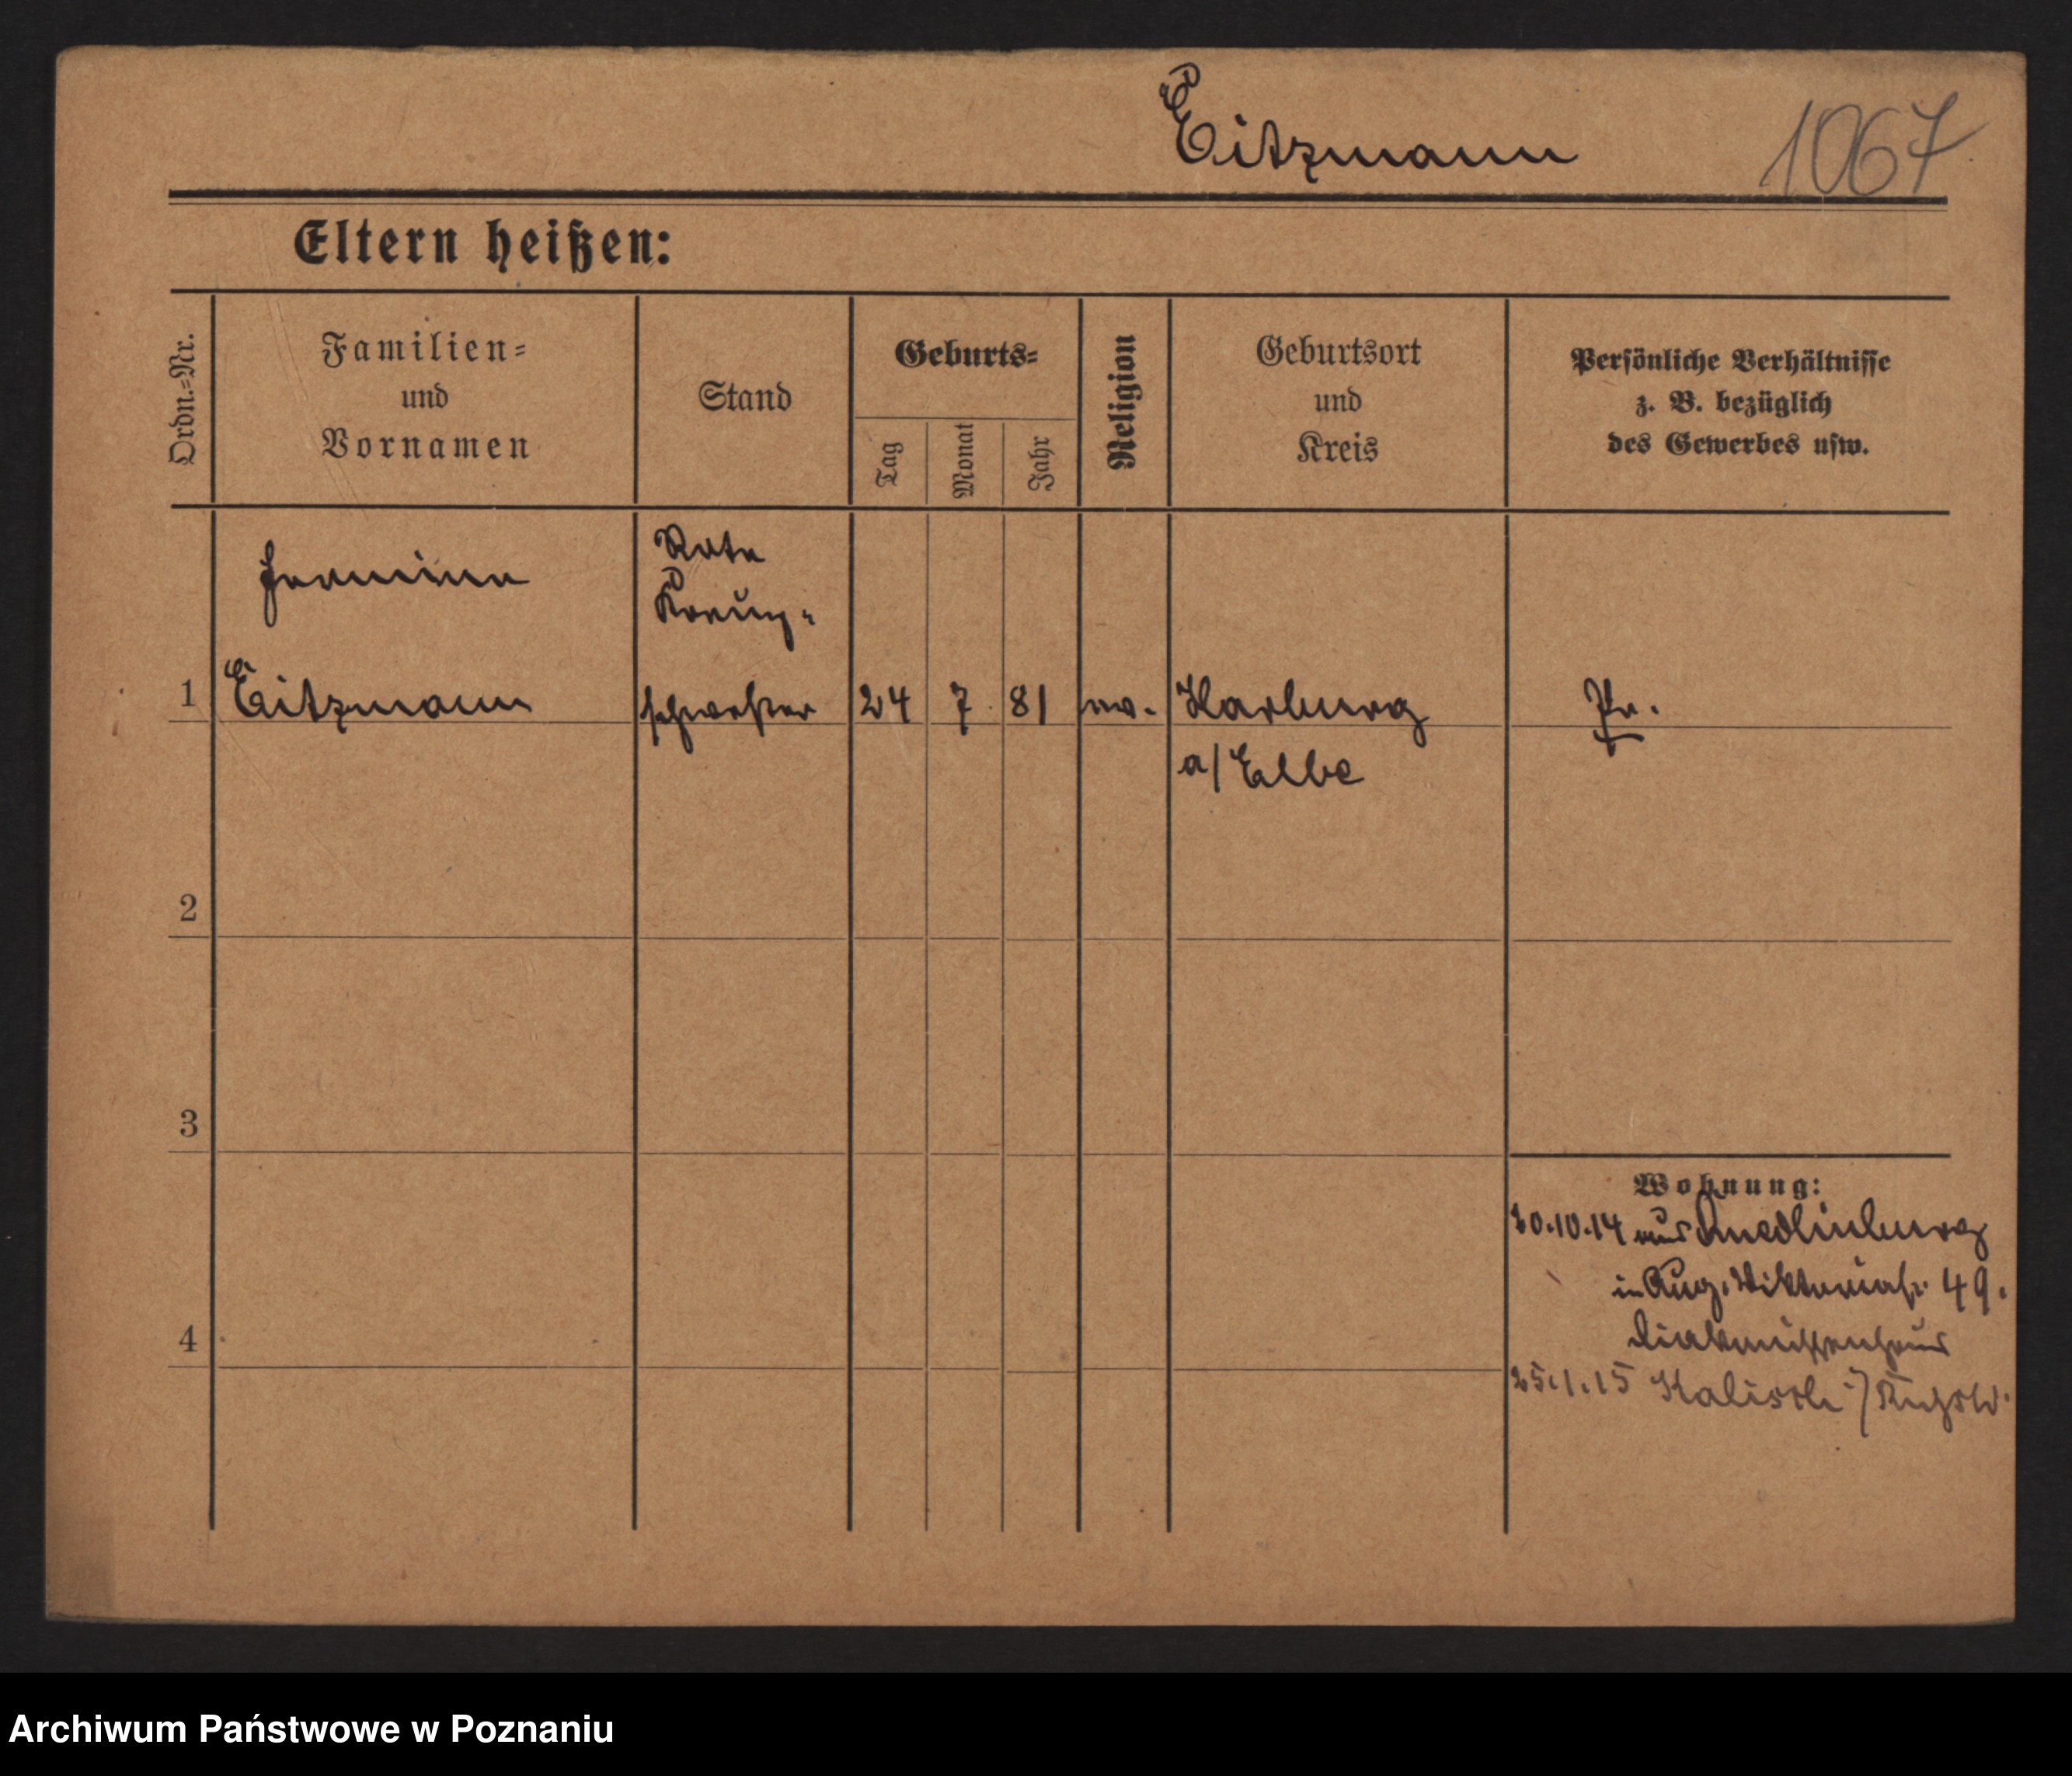 Eitzmann 1067
Eltern heißen:
Ordn.-Nr.
Familien-
und
Vornamen
Stand
Geburts-
Tag
Monat
Jahr
Religion
Geburtsort
und
Kreis
Persönliche Verhältnisse
z. B. bezüglich
des Gewerbes usw.
Rote
Kreuz-
1 Eitzmann schwester 24 7 81 ev. Harburg Pr.
a/ Elbe
2
3
Wohnung:
20.10.14 aus Quedlinburg
in Aug. Viktoriastr. 49.
Diakonissenhaus
4
25.1.15 Kalisch
Archiwum Państwowe w Poznaniu